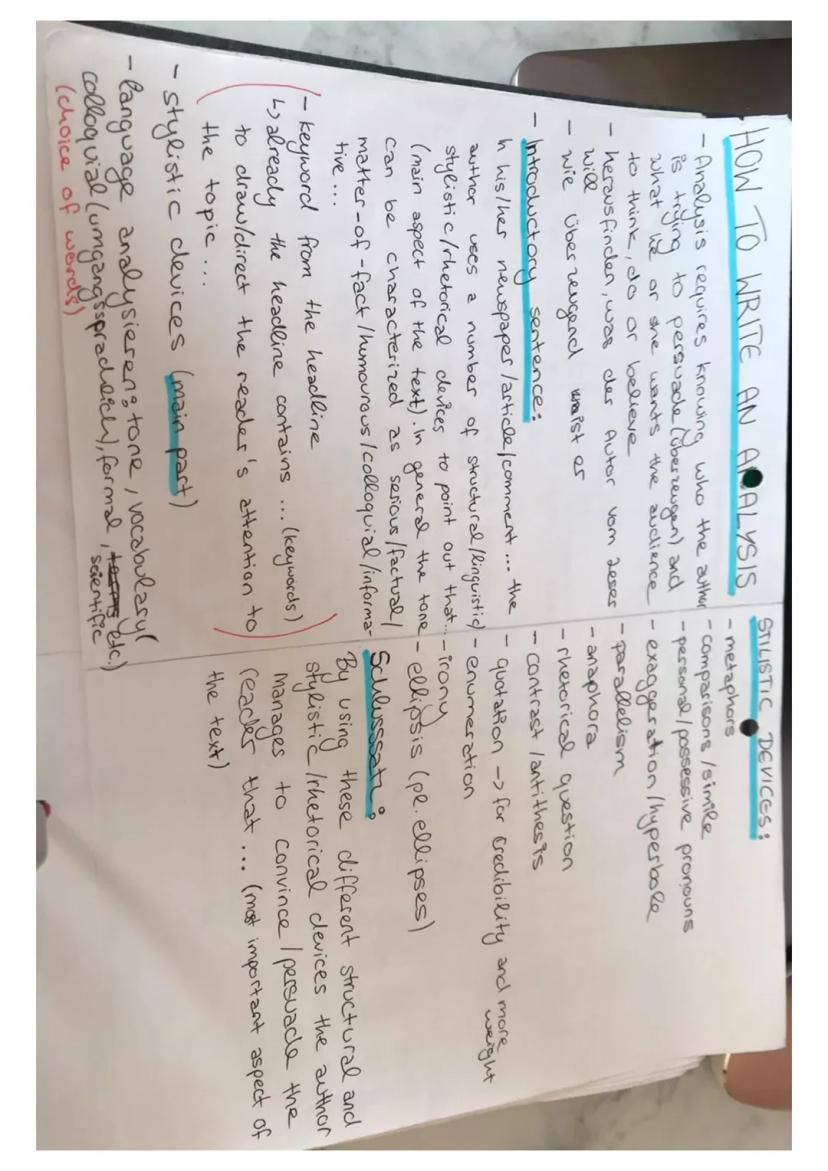 HOW TO WRITE AN ANALYSIS
- Analysis requires knowing who the author
is trying to persuade (überzeugen) and
what he or she wants the audience
to think, do or believe
- herausfinden, was der Autor vom Leser
will
- wie überzeugend ist er
- Introductory sentence:
h his/her newspaper/article/comment... the
author uses a number of structural/linguistic/
stylistic/rhetorical devices to point out that...
(main aspect of the text). In general the tone
can be characterized as serious/factual/
matter-of-fact/humourous/colloquial/informa-
tive...
- keyword from the headline
↳ already the headline contains ... (keywords)
to draw/direct the reader's attention to
the topic ...
- stylistic devices (main part)
- language analysieren: tone, vocabulary(
colloquial (umgangssprachlich), formal, terms etc.)
scientific
(choice of words)
STILISTIC DEVICES:
- metaphors
- comparisons/simile
- personal/possessive pronouns
- exaggeration/hyperbole
- parallelism
- anaphora
- rhetorical question
- contrast/antithesis
- quotation -> for credibility and more
weight
- enumeration
- irony
- ellipsis (pl. ellipses)
Schlusssatz:
By using these different structural and
stylistic/rhetorical devices the author
manages to convince/persuade the
reader that ... (most important aspect of
the text)